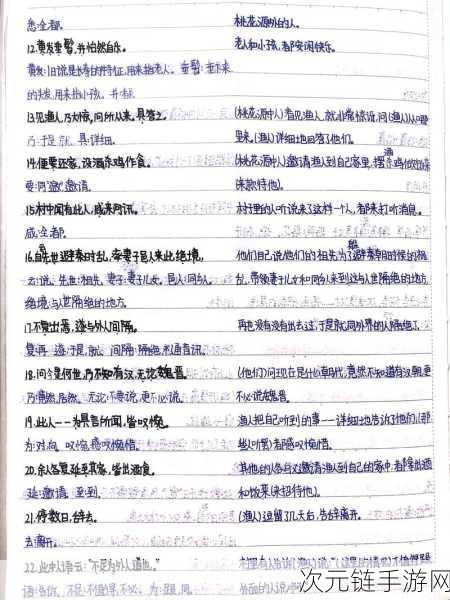 悉:全都。
桃花源外的人。
12.黄发垂髫,并怡然自乐。
老人和小孩,都安闲快乐。
黄发:旧说是长寿的特征,用来指老人。垂髫:垂下来
的头发,用来指小孩。并:都
13.见渔人,乃大惊,问所从来。具答之。
(桃花源中人)看见渔人,就非常惊讶,问(渔人)从哪
里来。(渔人)详细地回答了他们。
乃:于是,就 具:详细。
14.便要还家,设酒杀鸡作食。
(桃花源中人)邀请渔人到自己家里,摆酒杀鸡做饭
来款待他。
要:同“邀”邀请。
15.村中闻有此人,咸来问讯。
村子里的人听说来了这样一个人,都来打听消息。
咸:全都。
16.自云先世避秦时乱,率妻子邑人来此绝境,
他们自己说他们的祖先为了躲避秦朝时候的祸
乱,带领妻子儿女和同乡人来到这与人世隔绝的地方
云:说。先世:祖先。妻子:妻子儿女。邑人:同乡人。
绝境:与世隔绝的地方。
17.不复出焉,遂与外人间隔。
再也没有没有出去过,于是就同外界的人隔绝了。
复:再 遂:于是,就 间隔:隔绝,不通音讯。
18.问今是何世,乃不知有汉,无论魏晋。
(他们)问现在是什么朝代,竟然不知道有汉朝,更
不必说魏晋。
乃:竟然,居然。无论:不要说,更不必说。
19.此人一一为具言所闻,皆叹惋。
渔人把自己听到的事一一详细地告诉了他们,(那
些听罢)者感叹惋惜。
为:对,向。叹惋:感叹惋惜。
20.余人各复延至其家,皆出酒食。
其他的人各自又邀请渔人到自己的家中,都拿出酒
和饭菜(来招待他)。
延:邀请。至:到。
21.停数日,辞去。
(渔人)逗留了几天后,告辞离开。
去:离开。
22.此中人语云:“不足为外人道也。”
村里有人告诉(渔人)说:“(这里的情况)不值得跟
外面的人说
语:告诉。不足:不值得,不必。为:跟,同。
次元链手游网